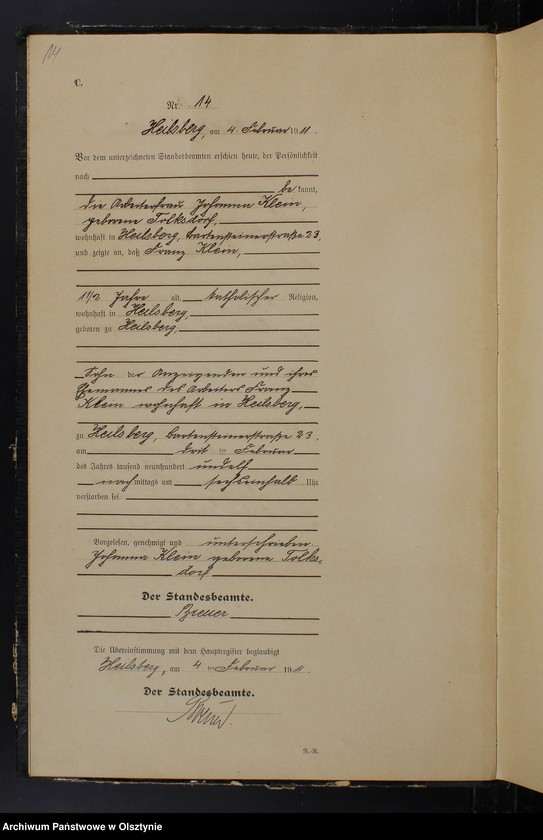 14
C.
Nr. 14
Heilsberg, am 4 Februar 1911.
Vor dem unterzeichneten Standesbeamten erschien heute, der Persönlichkeit
nach
be kannt,
die Arbeiterfrau Johanna Klein,
geborene Tolksdorf,
wohnhaft in Heilsberg, Bartensteinerstraße 23,
und zeigte an, daß Franz Klein,
1 1/2 Jahre alt, katholischer Religion,
wohnhaft in Heilsberg,
geboren zu Heilsberg,
Sohn der Anzeigenden und ihres
Ehemannes des Arbeiters Franz
Klein wohnhaft in Heilsberg,
zu Heilsberg, Bartensteinerstraße 23,
am Februar
des Jahres tausend neunhundert undelf
nach mittags um Uhr
verstorben sei.
Vorgelesen, genehmigt und unterschrieben.
Johanna Klein geborene Tolks-
dorf
Der Standesbeamte.
Breuer
Die Übereinstimmung mit dem Hauptregister beglaubigt
Heilsberg, am 4 Februar 1911
Der Standesbeamte.
Breuer.
R.-R.
Archiwum Państwowe w Olsztynie